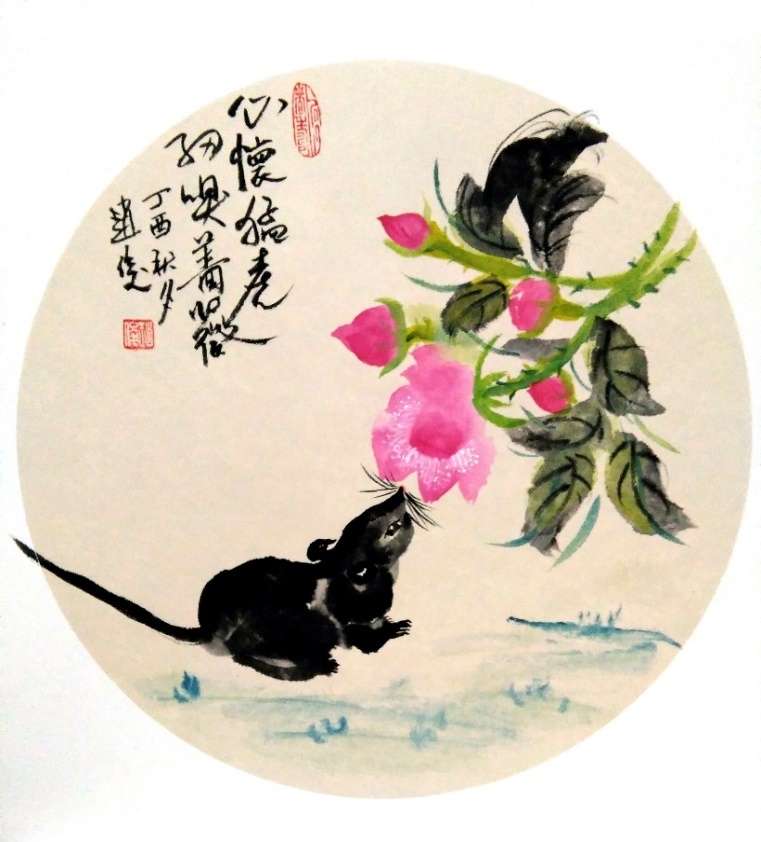 心懷猛虎
細嗅薔薇
丁酉秋夕